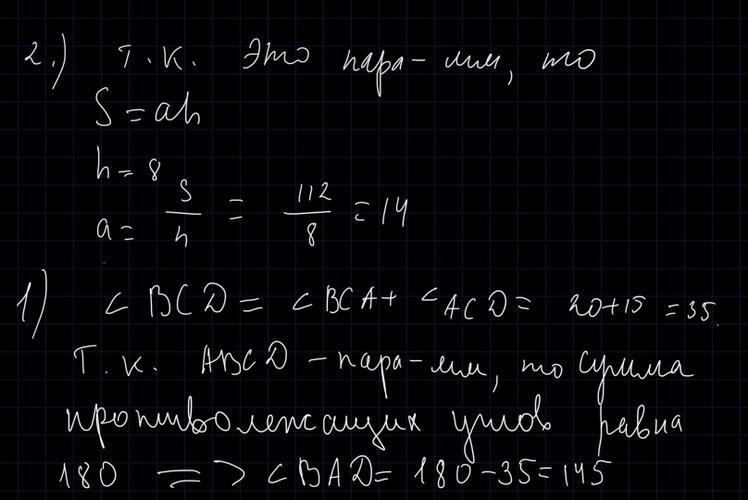 2.) Т.К. Это пара-мм, то
S = ah
h = 8
a = S/h = 112/8 = 14
1) ∠BCD = ∠BCA + ∠ACD = 20+15 = 35.
Т.К. ABCD - пара-мм, то сумма
противолежащих углов равна
180 => ∠BAD = 180-35=145